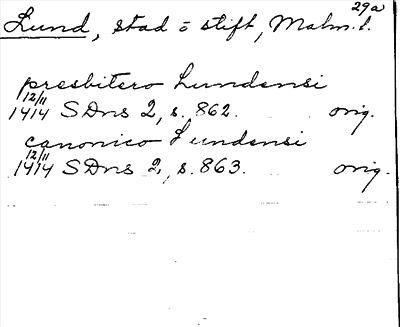 29a
Lund, stad o stift, Malm. l.
presbitero Lundensi
12/11
1414 SDns 2, s. 862. orig.
canonico Lundensi
12/11
1414 SDns 2, s. 863. orig.